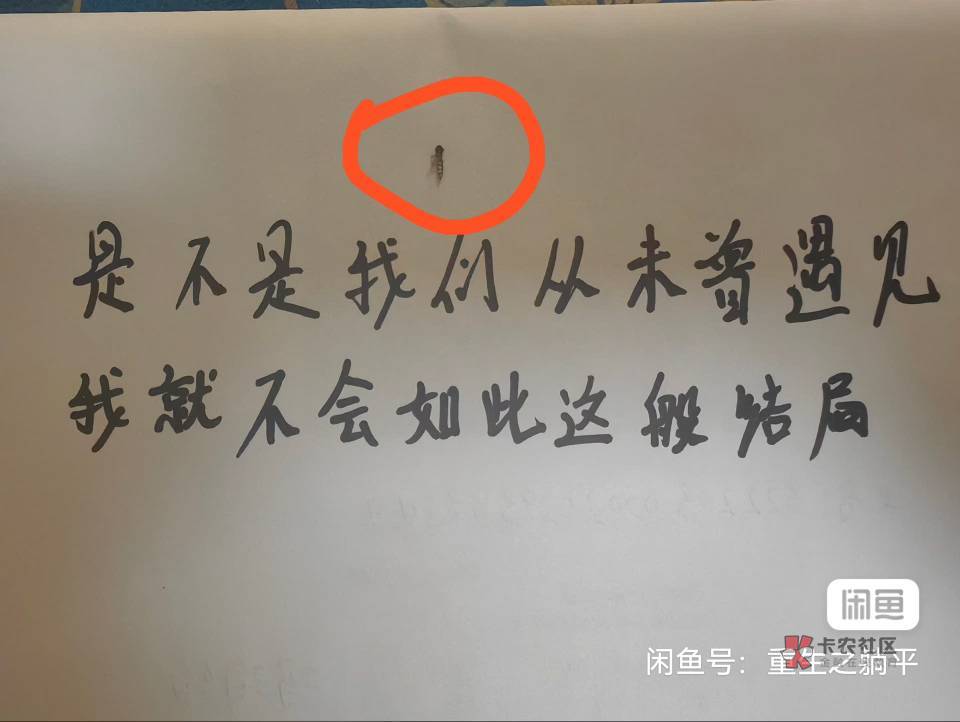 是不是我们从未曾遇见
我就不会如此这般结局
闲鱼
卡农社区
闲鱼号：重生之躺平